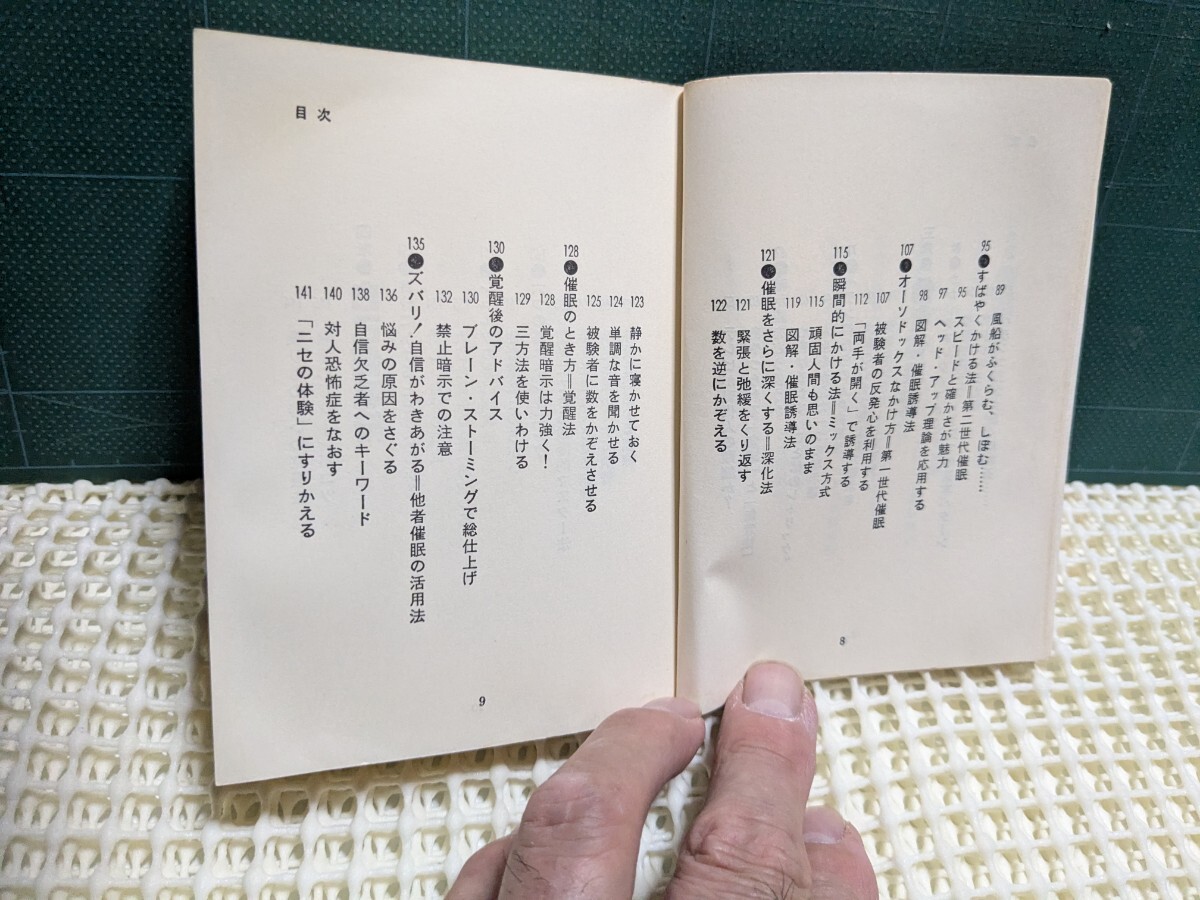 89 風船がふくらむ、しぼむ……
95●すばやくかける法＝第二世代催眠
95 スピードと確かさが魅力
97 ヘッド・アップ理論を応用する
98 図解・催眠誘導法
107●オーソドックスなかけ方＝第一世代催眠
107 被験者の反発心を利用する
112 「両手が開く」で誘導する
115●瞬間的にかける法＝ミックス方式
115 頑固人間も思いのまま
119 図解・催眠誘導法
121●催眠をさらに深くする＝深化法
121 緊張と弛緩をくり返す
122 数を逆にかぞえる
8
目次
123 静かに寝かせておく
124 単調な音を聞かせる
125 被験者に数をかぞえさせる
128●催眠のとき方＝覚醒法
128 覚醒暗示は力強く！
129 三方法を使いわける
130●覚醒後のアドバイス
130 ブレーン・ストーミングで総仕上げ
132 禁止暗示での注意
135●ズバリ！自信がわきあがる＝他者催眠の活用法
136 悩みの原因をさぐる
138 自信欠乏者へのキーワード
140 対人恐怖症をなおす
141 「ニセの体験」にすりかえる
9